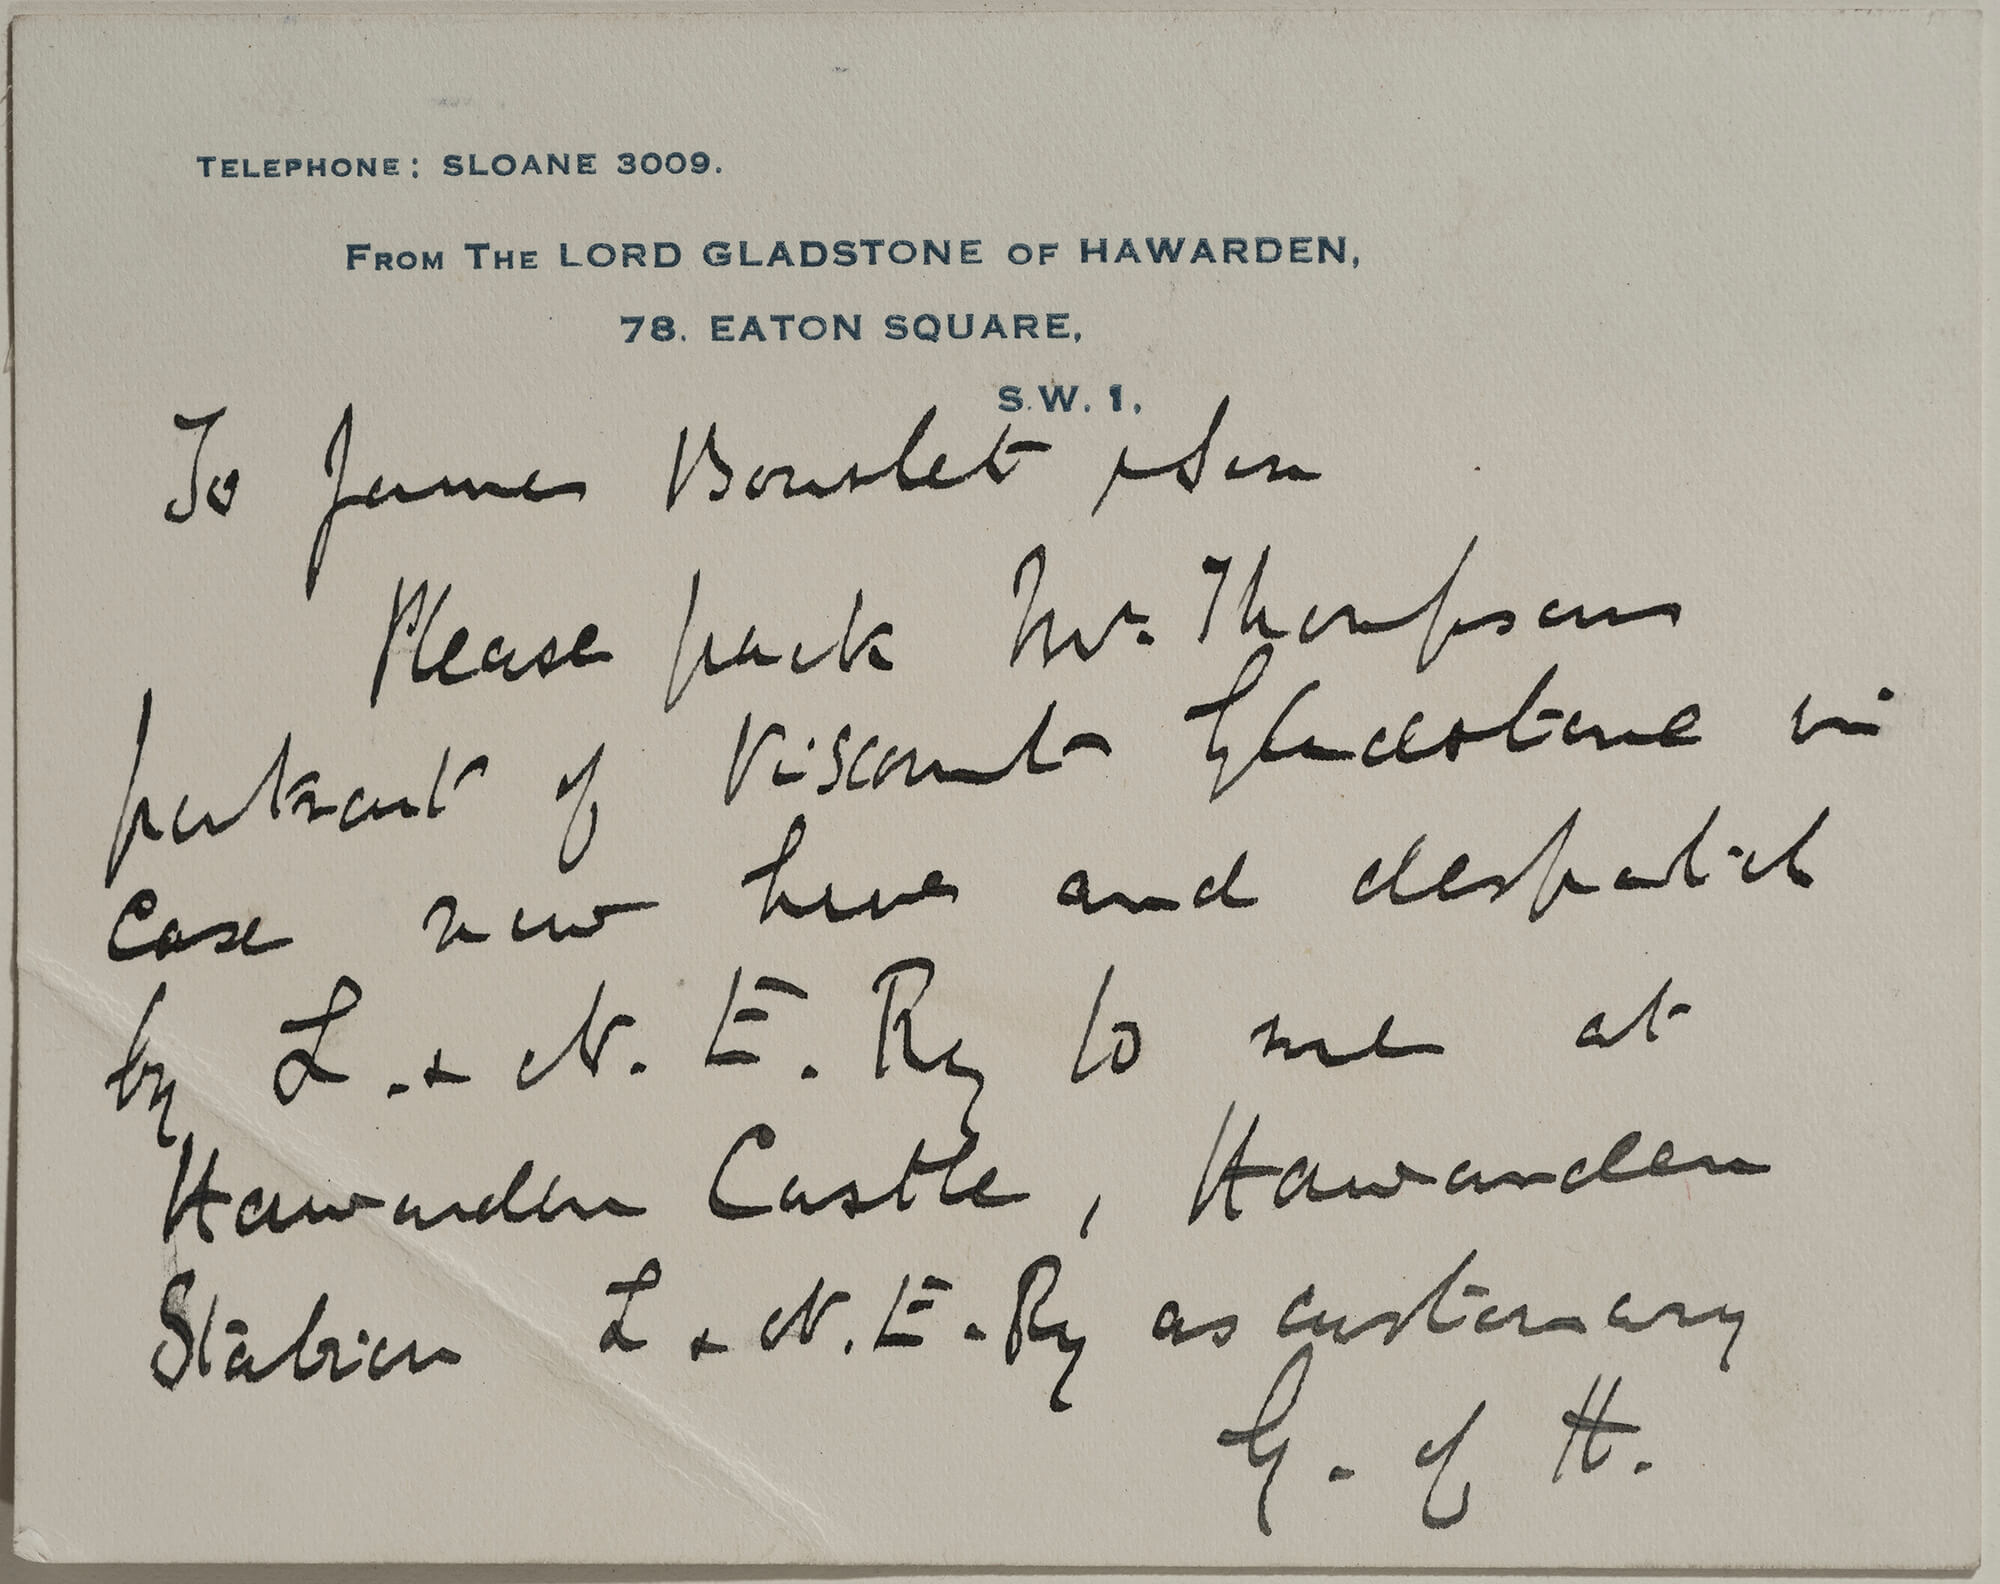 TELEPHONE: SLOANE 3009.
FROM THE LORD GLADSTONE OF HAWARDEN,
78. EATON SQUARE,
S.W. 1.
To James Bourlet & Son
Please pack Mr. Thompsons
portrait of Viscount Gladstone in
case now here and despatch
by L. & N. E. Ry to me at
Hawarden Castle, Hawarden
Station L & N. E. Ry as customary
G. of H.